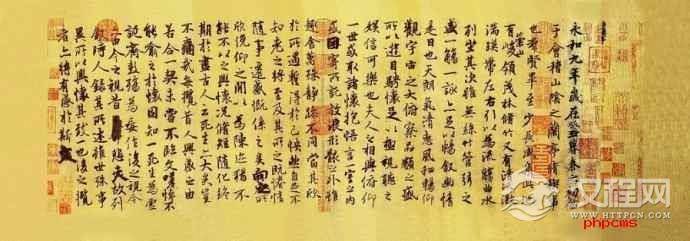 永和九年歲在癸丑暮春之初會
于會稽山陰之蘭亭脩稧事
也群賢畢至少長咸集此地
有崇山峻領茂林脩竹又有清流激
湍暎帶左右引以為流觴曲水
列坐其次雖無絲竹管弦之
盛一觴一詠亦足以暢敘幽情
是日也天朗氣清惠風和暢仰
觀宇宙之大俯察品類之盛
所以遊目騁懷足以極視聽之
娛信可樂也夫人之相與俯仰
一世或取諸懷抱悟言一室之內
或因寄所託放浪形骸之外雖
趣舍萬殊靜躁不同當其欣
於所遇暫得於己怏然自足不
知老之將至及其所之既惓情
隨事遷感慨係之矣向之所
欣俛仰之閒以為陳迹猶不
能不以之興懷況脩短隨化終
期於盡古人云死生亦大矣豈
不痛哉每攬昔人興感之由
若合一契未嘗不臨文嗟悼不
能喻之於懷固知一死生為虛
誕齊彭殤為妄作後之視今
亦由今之視昔悲夫故列
敘時人錄其所述雖世殊事
異所以興懷其致一也後之攬
者亦將有感於斯文
汉程网
HTTPCN.COM
phpcms